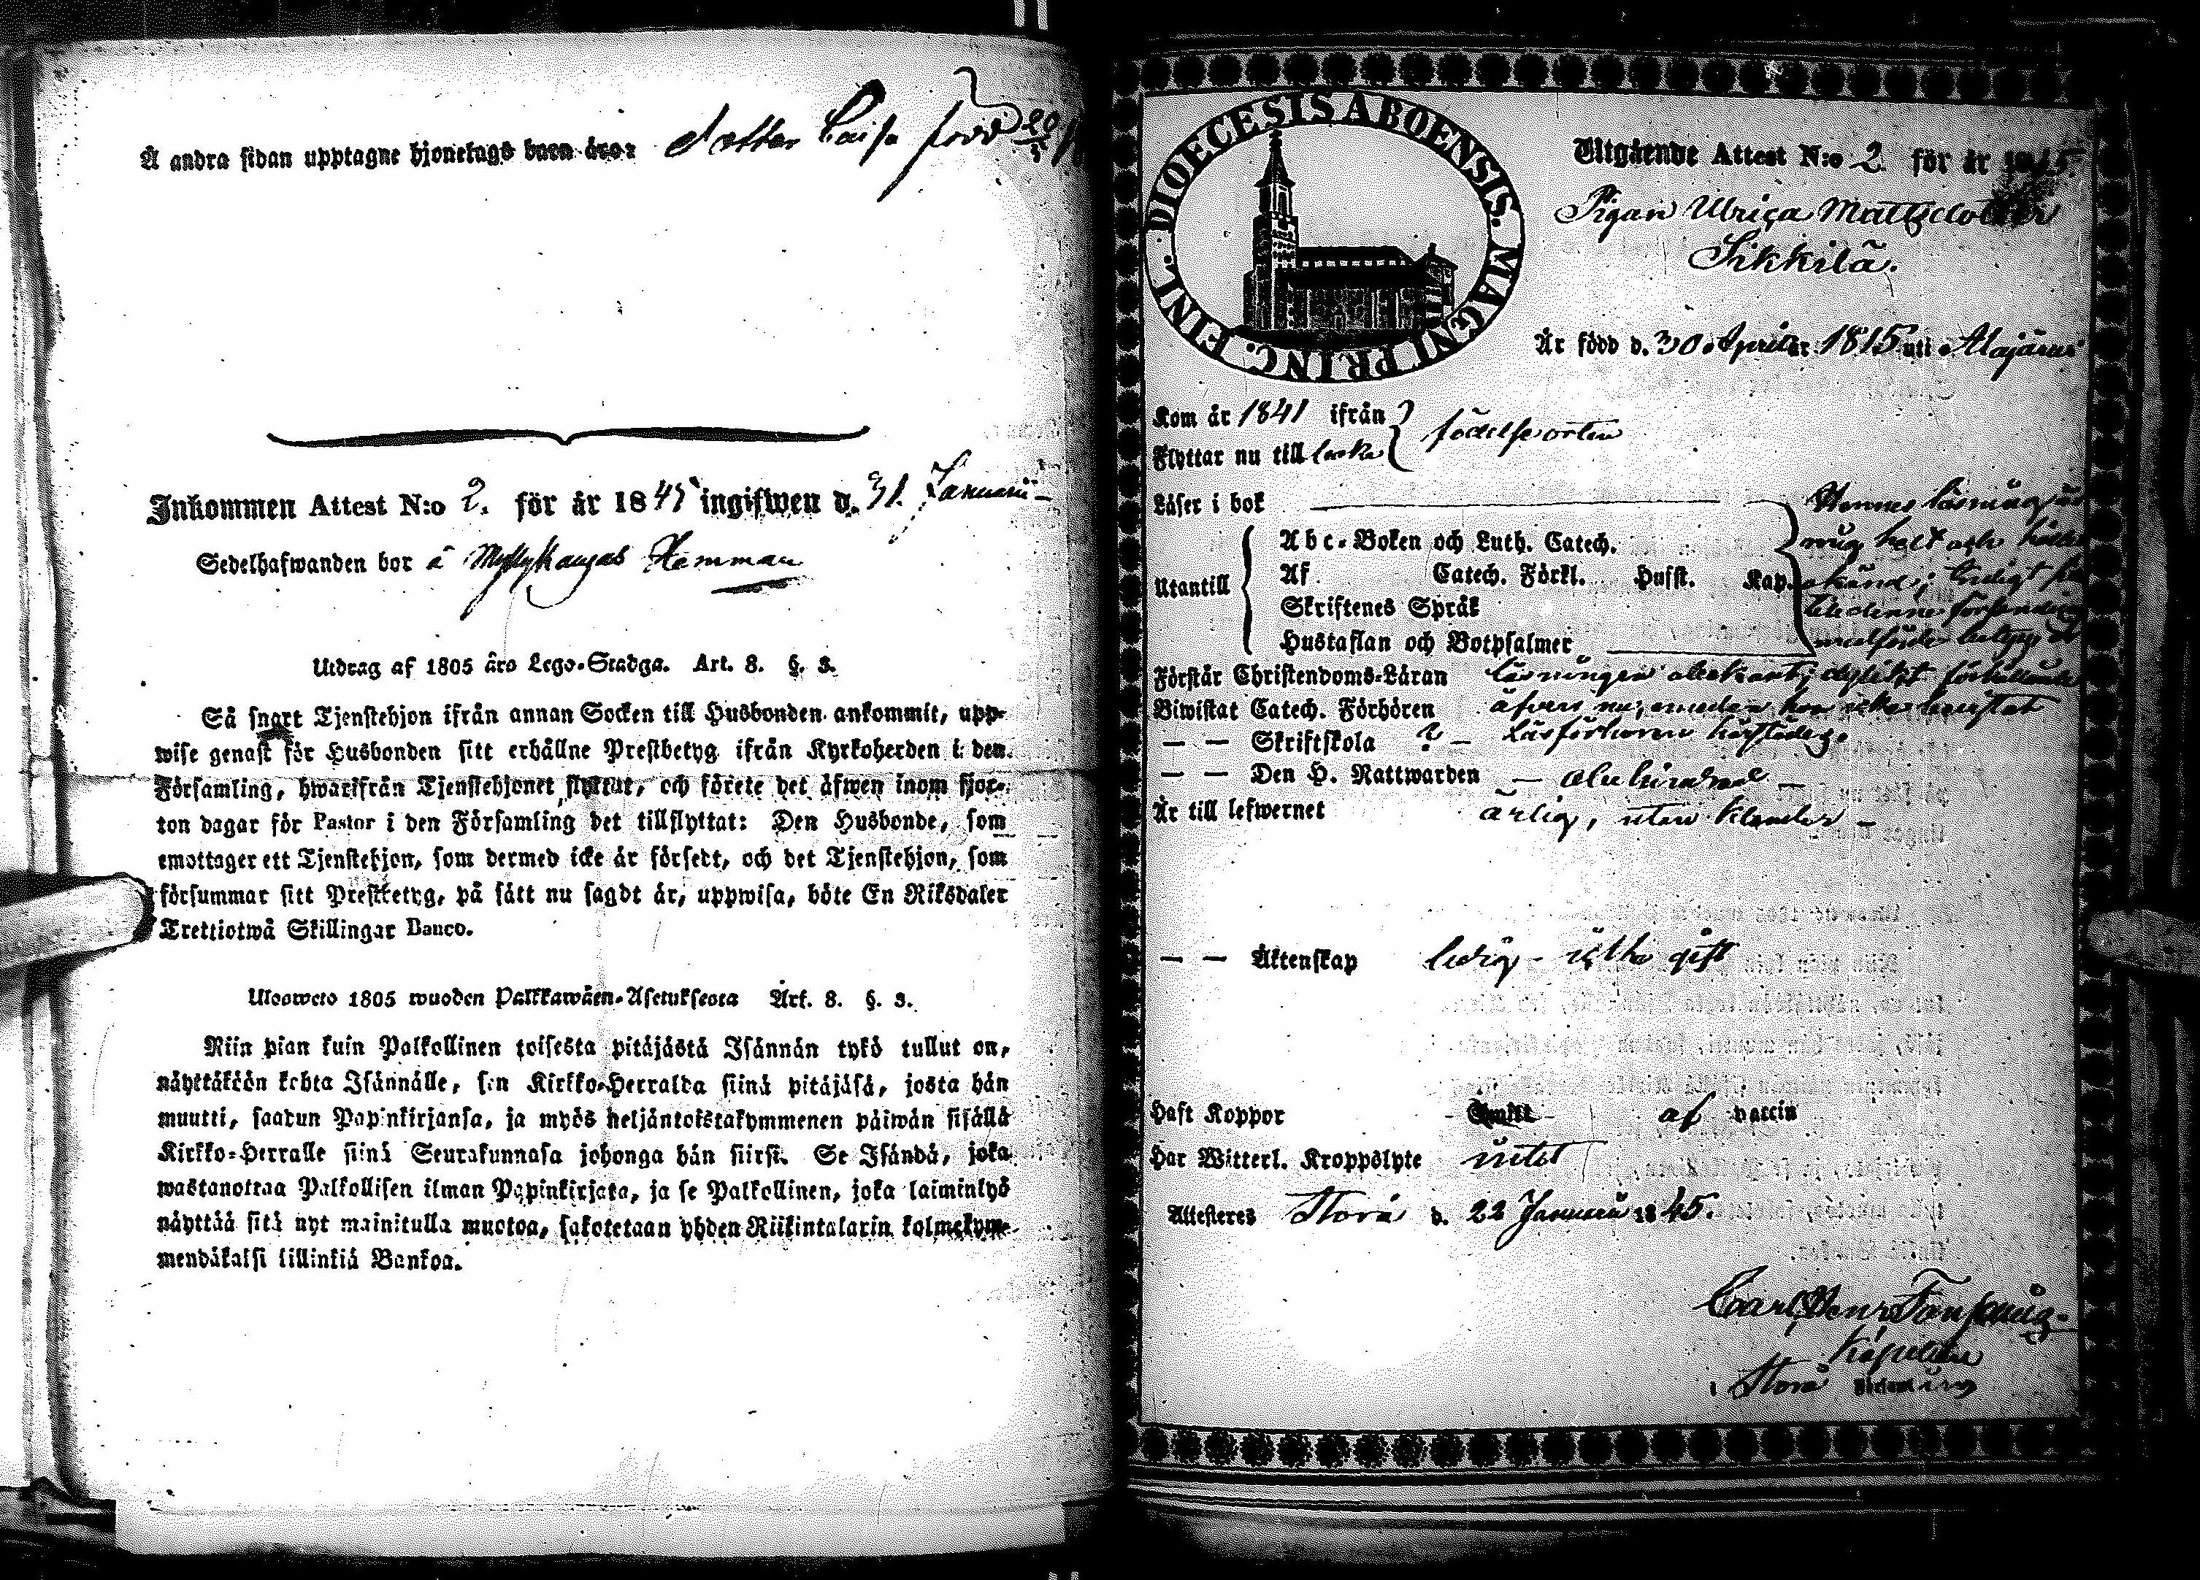 Å andra sidan upptagne hjonelags barn äro: dotter Caisa född 20
Inkommen Attest N:o 2. för år 1845 ingifwen d. 31. Januarii
Sedelhafwanden bor å Myllykangas Hemman
Utdrag af 1805 års Lego-Stadga. Art. 8. §. 3.
Så snart Tjenstehjon ifrån annan Socken till Husbonden ankommit, upp-
wise genast för Husbonden sitt erhållne Prestbetyg ifrån Kyrkoherden i den
Församling, hwarifrån Tjenstehjonet flyttat, och förete det äfwen inom fjor-
ton dagar för Pastor i den Församling det tillflyttat: Den Husbonde, som
emottager ett Tjenstehjon, som dermed icke är försedt, och det Tjenstehjon, som
försummar sitt Prestbetyg, på sätt nu sagdt är, uppwisa, böte En Riksdaler
Trettiotwå Skillingar Banco.
Ulosweto 1805 wuoden Palkkawäen-Asetuksesta Art. 8. §. 3.
Niin pian kuin Palkollinen toisesta pitäjästä Isännän tykö tullut on,
näyttäköön kohta Isännälle, sen Kirkko-Herralda siinä pitäjäsä, josta hän
muutti, saadun Papinkirjansa, ja myös neljäntoistakymmenen päiwän sisällä
Kirkko-Herralle siinä Seurakunnasa johonga hän siirsi. Se Isändä, joka
wastanottaa Palkollisen ilman Papinkirjata, ja se Palkollinen, joka laiminlyö
näyttää sitä nyt mainitulla muotoa, sakotetaan yhden Riikintalarin kolmekym-
mendäkaksi killinkiä Bankoa.
DIOECESIS ABOENSIS. MAGNI PRINC. FINL.
Utgående Attest N:o 2. för år 1845.
Pigan Ulrica Mattsdotter
Sikkilä.
Är född d. 30 April år 1815 uti Alajärvi
Kom år 1841 ifrån } födelseorten
Flyttar nu till
Läser i bok
Utantill { Abc-Boken och Luth. Catech.
Af Catech. Förkl. Husst. Kap.
Skriftenes Språk
Hustaflan och Botpsalmer
Förstår Christendoms-Läran
Biwistat Catech. Förhören
— — Skriftskola ? — Läsförhören
— — Den H. Nattwarden — obehindrad —
Är till lefwernet ärlig, utan klander —
— — Äktenskap ledig - icke gift
Haft Koppor af vaccin
Har Witterl. Kroppslyte intet
Attesteras Storå d. 22 Januarii 1845.
Carl Henr
Storå